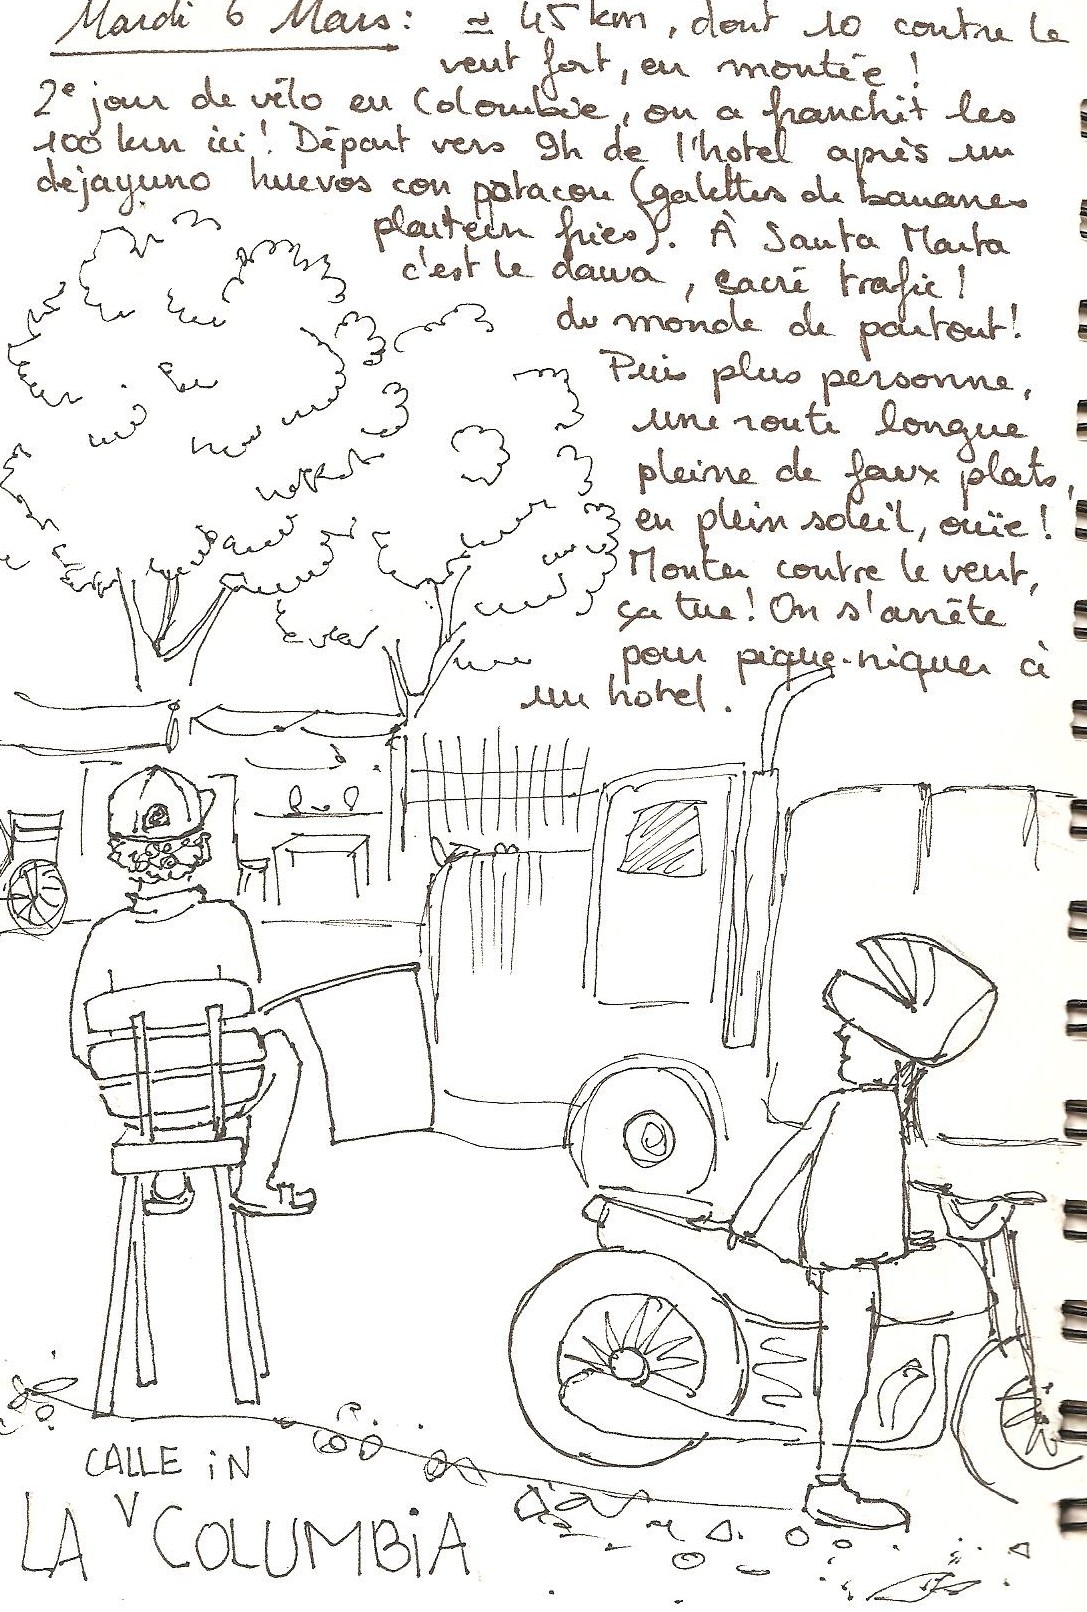 Mardi 6 Mars : ≃ 45 km, dont 10 contre le
vent fort, en montée !
2e jour de vélo en Colombie, on a franchit les
100 km ici ! Départ vers 9h de l'hotel après un
dejayuno huevos con patacon (galettes de bananes
plantein fries). À Santa Marta
c'est le dawa, sacré trafic !
du monde de partout !
Puis plus personne,
une route longue
pleine de faux plats,
en plein soleil, ouïe !
Monter contre le vent,
ça tue ! On s'arrête
pour pique-niquer à
un hotel.
CALLE iN
LA V COLUMBiA